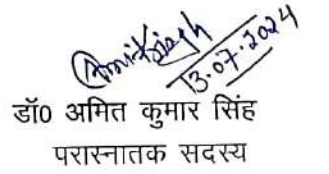 Amit Singh
13.07.2024
डॉ0 अमित कुमार सिंह
परास्नातक सदस्य